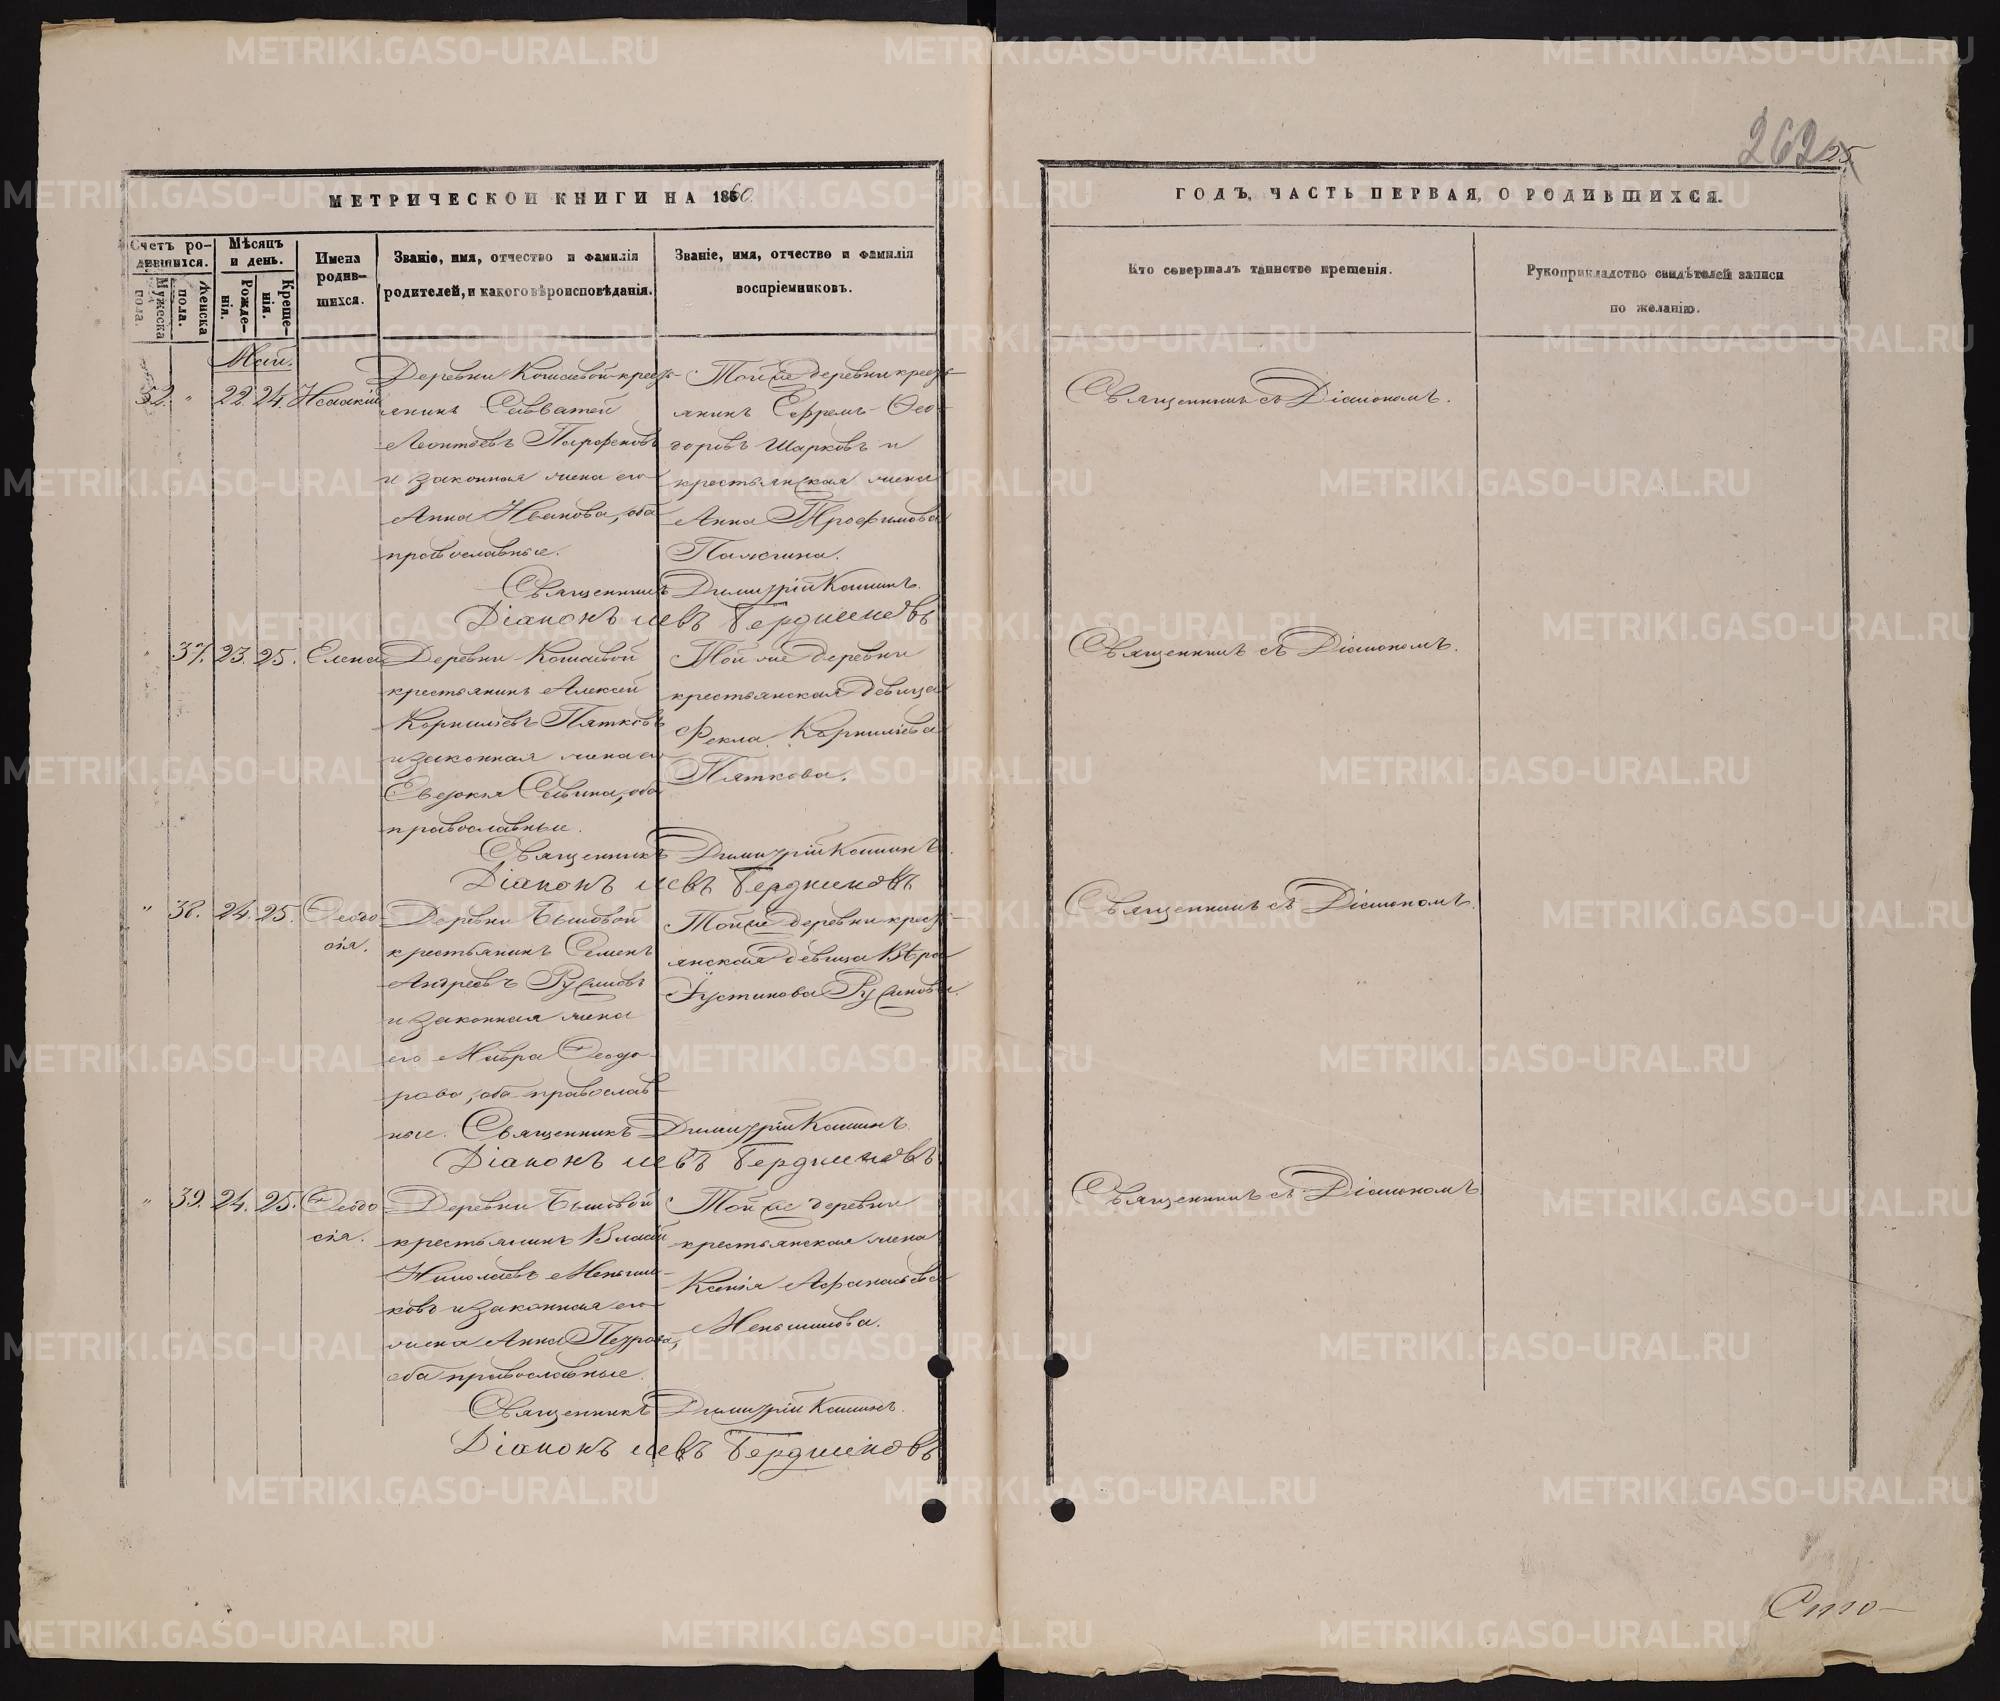 262
25
МЕТРИЧЕСКОЙ КНИГИ НА 1860
ГОДЪ, ЧАСТЬ ПЕРВАЯ, О РОДИВШИХСЯ.
Счетъ родившихся.
Мужеска пола.
Женска пола.
Мѣсяцъ и день.
Рожденія.
Крещенія.
Имена родившихся.
Званіе, имя, отчество и фамилія
родителей, и какого вѣроисповѣданія.
Званіе, имя, отчество и фамилія
воспріемниковъ.
Кто совершалъ таинство крещенія.
Рукоприкладство свидѣтелей записи
по желанію.
Май.
52. " 22. 24. Исаакій
Деревни Кошаевой крестьянинъ Савватей
Леонтьевъ Парфеновъ
и законная жена его
Анна Иванова, оба
православные.
Тойже деревни крестьянинъ Ефремъ Ѳеодоровъ Шарковъ и
крестьянская жена
Анна Трофимова
Священникъ съ Діакономъ.
Священникъ Димитрій Кашинъ.
Діаконъ Левъ Бердниковъ
" 37. 23. 25. Елена
Деревни Кошаевой
крестьянинъ Алексей
Корниліевъ Пятковъ
и законная жена его
Евдокія Саввина, оба
православные.
Той же деревни
крестьянская девица
Фекла Корниліева
Пяткова.
Священникъ съ Діакономъ.
Священникъ Димитрій Кашинъ.
Діаконъ Левъ Бердниковъ
" 38. 24. 25. Ѳеодосія.
Деревни
крестьянинъ Семенъ
Андреевъ Русиновъ
и законная жена
его Мавра Ѳеодорова, оба православные.
Тойже деревни крестьянская девица Вѣра
Іустинова Русинова.
Священникъ съ Діакономъ.
Священникъ Димитрій Кашинъ.
Діаконъ Левъ Бердниковъ
" 39. 24. 25. Ѳеодосія.
Деревни
крестьянинъ Власій
Николаевъ Меньшиковъ и законная его
жена Анна Петрова,
оба православные.
Той же деревни
крестьянская жена
Ксенія Афанасьева
Меньшикова.
Священникъ съ Діакономъ.
Священникъ Димитрій Кашинъ.
Діаконъ Левъ Бердниковъ
METRIKI.GASO-URAL.RU